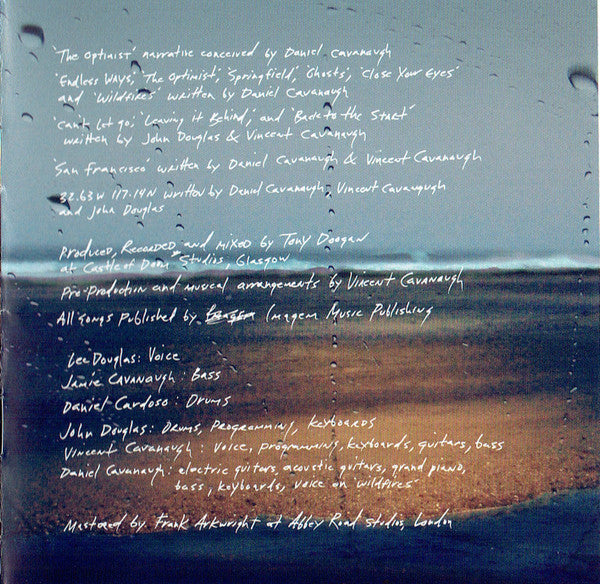 'The Optimist' narrative conceived by Daniel Cavanaugh
'Endless Ways,' 'The Optimist,' 'Springfield,' 'Ghosts', 'Close Your Eyes'
and 'Wildfires' written by Daniel Cavanaugh
'Can't Let Go,' 'Leaving it Behind,' and 'Back to the Start'
written by John Douglas & Vincent Cavanaugh
'San Francisco' written by Daniel Cavanaugh & Vincent Cavanaugh
32.63N 117.14W written by Daniel Cavanaugh, Vincent Cavanaugh
and John Douglas
Produced, Recorded, and mixed by Tony Doogan
at Castle of Doom Studios, Glasgow
Pre-Production and musical arrangements by Vincent Cavanaugh
All songs Published by Imagem Music Publishing
Lee Douglas: Voice
Jamie Cavanaugh: Bass
Daniel Cardoso: Drums
John Douglas: Drums, Programming, keyboards
Vincent Cavanaugh: Voice, programming, keyboards, guitars, bass
Daniel Cavanaugh: electric guitars, acoustic guitars, grand piano,
bass, keyboards, voice on 'wildfires'
Mastered by Frank Arkwright at Abbey Road Studios, London